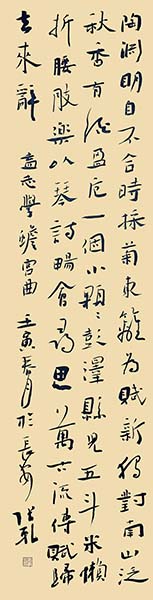 陶淵明自不合時採菊東籬為賦新獨對南山泛
秋香有酒盈卮一個小顆〻彭澤縣兒五斗米懶
折腰肢樂以琴詩暢會尋思萬古流傳賦歸
去來辭 盍志學蟾宮曲 壬寅春月於長安